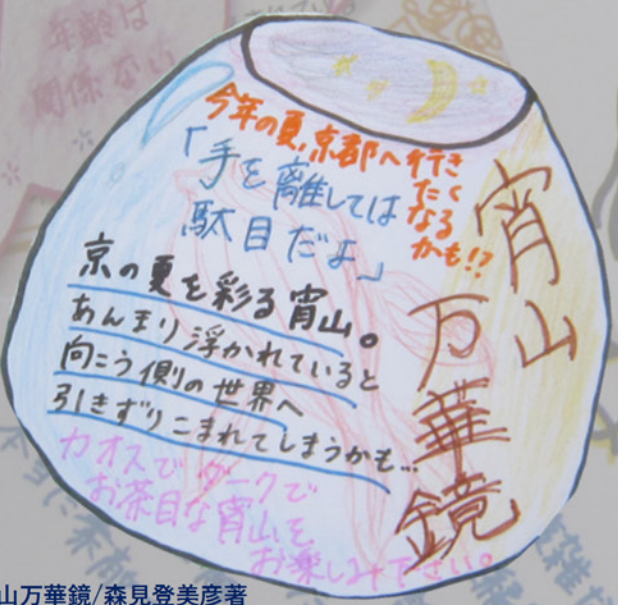 年齢は
関係ない
今年の夏、京都へ行き
たく
なる
かも!?
「手を離しては
駄目だよ」
宵山
万華鏡
京の夏を彩る宵山。
あんまり浮かれていると
向こう側の世界へ
引きずりこまれてしまうかも…
カオスでダークで
お茶目な宵山を
お楽しみ下さい。
山万華鏡/森見登美彦著